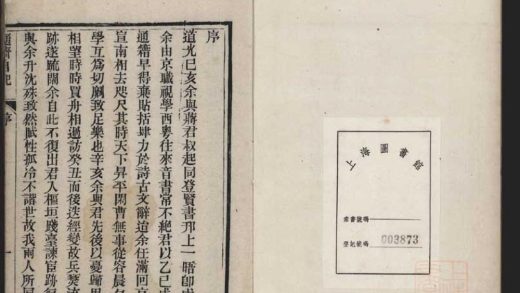 上海圖書館
索書號碼
登記號碼 003873
序
道光己亥余與蔣君叔起同登賢書邗上一晤卽
余由京職視學西粵往來音書常不絕君以乙巳
通籍早得棄貼括肆力於詩古文辭迨余任滿回
宣南相去咫尺其時天下昇平閒曹無事從容晨
學互為切劘致足樂也辛亥余與君先後以憂歸
相望時時買舟相過訪癸丑而後迭經變故兵燹流
跡遂疏闊余自此不復出君入樞垣踐臺諫宦跡
與余升沈殊致然賦性孤冷不諧世故我兩人所
通齋自記 序 一